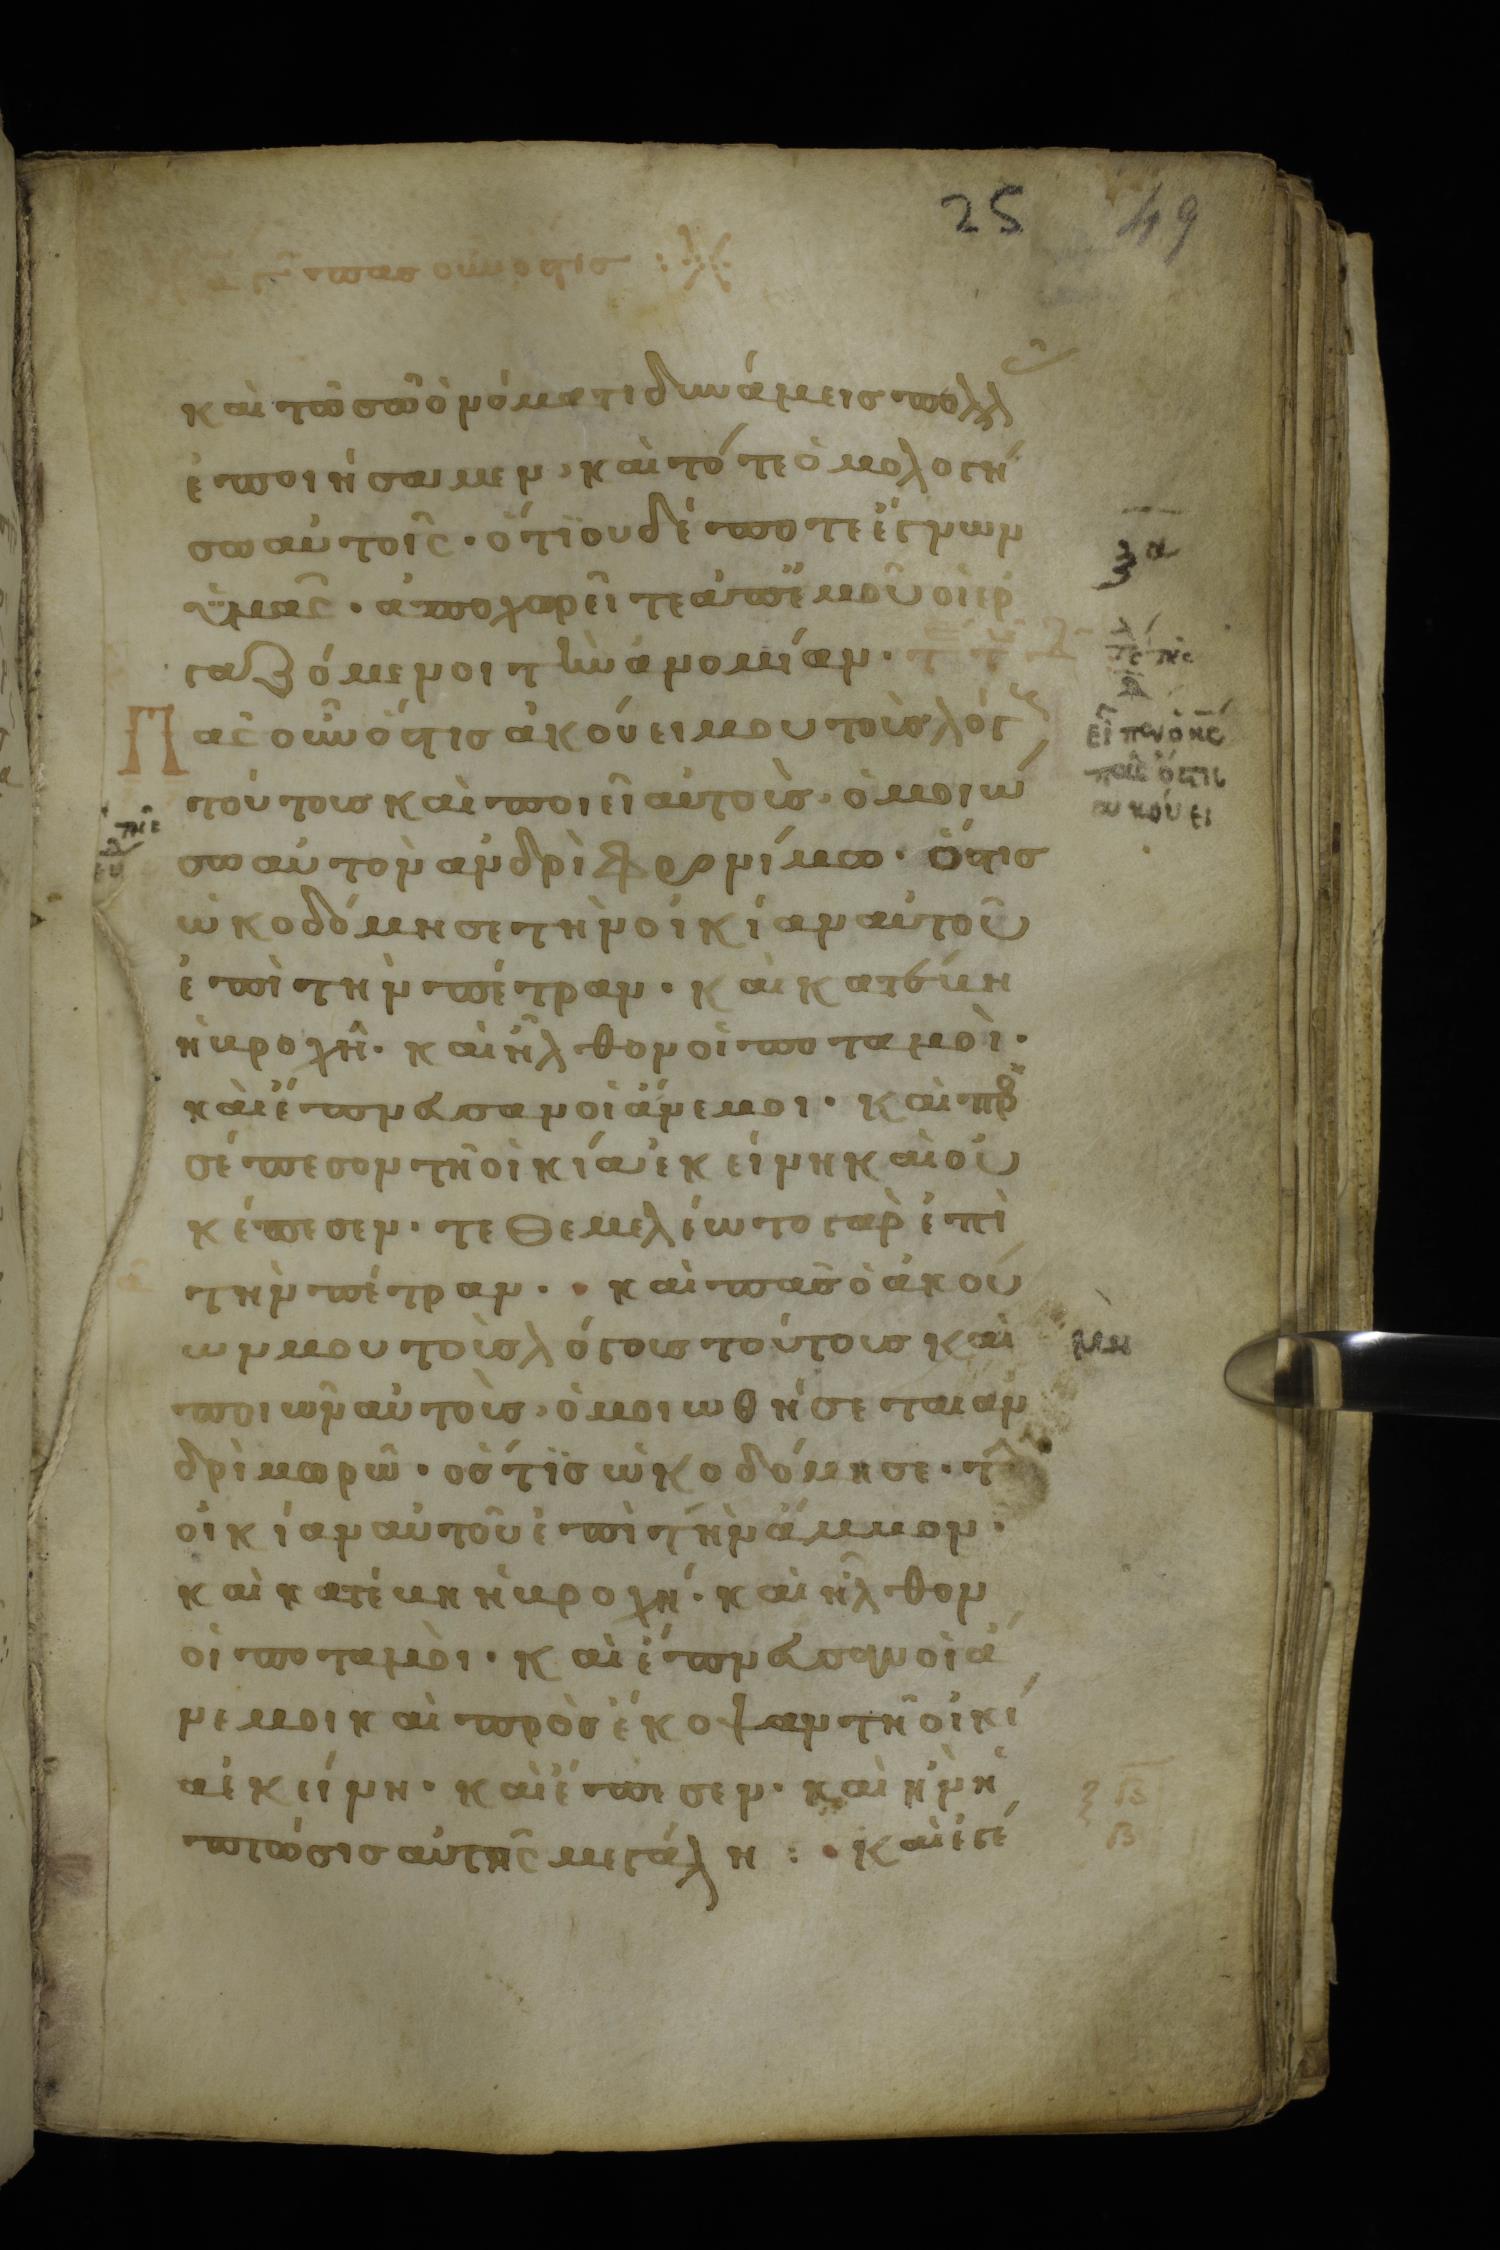 25 49
πας ουν οστις :
και τῶ σῶ ὀνόματι δυνάμεις πολλ
ἐποιήσαμεν · και τότε ὁμολογή
σω αὐτοῖς · ὅτι ουδέποτε ἔγνων
ὑμᾶς · ἀποχωρεῖτε ἀπ ἐμοῦ οἱ ἐρ
γαζόμενοι την ἀνομίαν ·
Πᾶς οὖν ὅστις ἀκούει μου τοὺς λόγ
τούτους και ποιεῖ αὐτοὺς · ὁμοιώ
σω αὐτὸν ἀνδρὶ φρονίμω · ὅστις
ὠκοδόμησε τὴν οἰκίαν αὐτοῦ
ἐπὶ τὴν πέτραν · και κατέβη
ἡ βροχὴ · και ἦλθον οἱ ποταμοὶ ·
και ἔπνευσαν οἱ ἄνεμοι · και προ
σέπεσον τῆ οἰκία ἐκείνη και οὐ
κ ἔπεσεν · τεθεμελίωτο γαρ ἐπὶ
τὴν πέτραν · · και πᾶς ὁ ἀκού
ων μου τοὺς λόγους τούτους και
μὴ
ποιῶν αὐτοὺς · ὁμοιωθήσεται ἀν
δρὶ μωρῶ · ὁστις ὠκοδόμησε · τ
οἰκίαν αὐτοῦ ἐπὶ τὴν ἄμμον ·
και κατέβη ἡ βροχή · και ἦλθον
οἱ ποταμοὶ · και ἔπνευσαν οἱ ἄ
νεμοι και προσέκοψαν τῆ οἰκί
α ἐκείνη · και ἔπεσεν · και ἦν ἡ
πτῶσις αὐτῆς μεγάλη : · και ἐγέ
ξα
εἶπεν ὁ κς
πᾶς ὅστις
ακούει